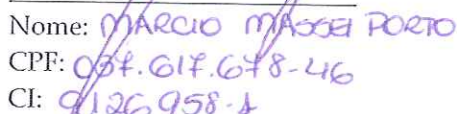 Nome: MARCIO MASSEI PORTO
CPF: 037.617.678-46
CI: 9126958-1